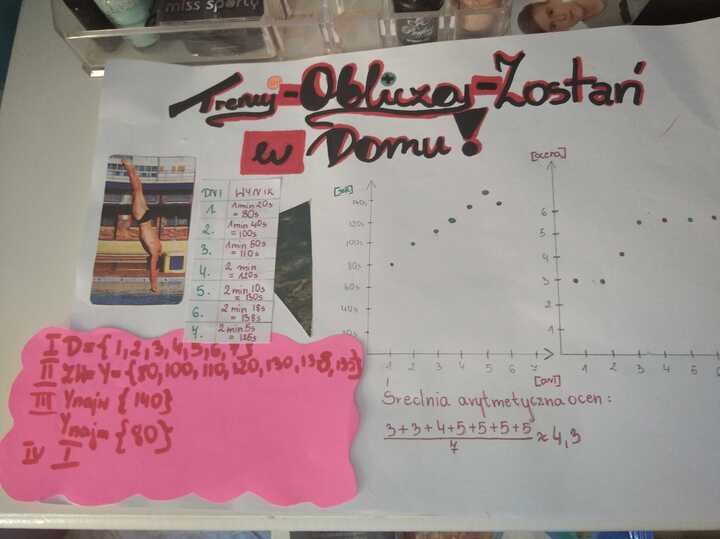 miss sporty
Trenuj-Obliczaj-Zostań
w Domu!
DNI WYNIK
1. 1min 20s
= 80s
2. 1min 40s
= 100s
3. 1min 50s
= 110s
4. 2 min
= 120s
5. 2 min 10s
= 130s
6. 2 min 18s
= 138s
7. 2 min 5s
= 125s
[sek]
140s
120s
100s
80s
60s
40s
1 2 3 4 5 6 7
[dni]
[ocena]
6
5
4
3
2
1
1 2 3 4 5
I D={1,2,3,4,5,6,7}
II ZW=Y={80,100,110,120,130,138,
III Ynajw {140}
Ynajm={80}
IV I
Średnia arytmetyczna ocen:
3+3+4+5+5+5+5
7
≈ 4,3